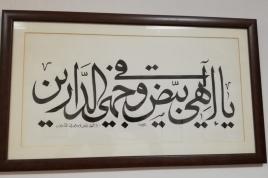 يا إلهي بيّض وجهي في الدارين